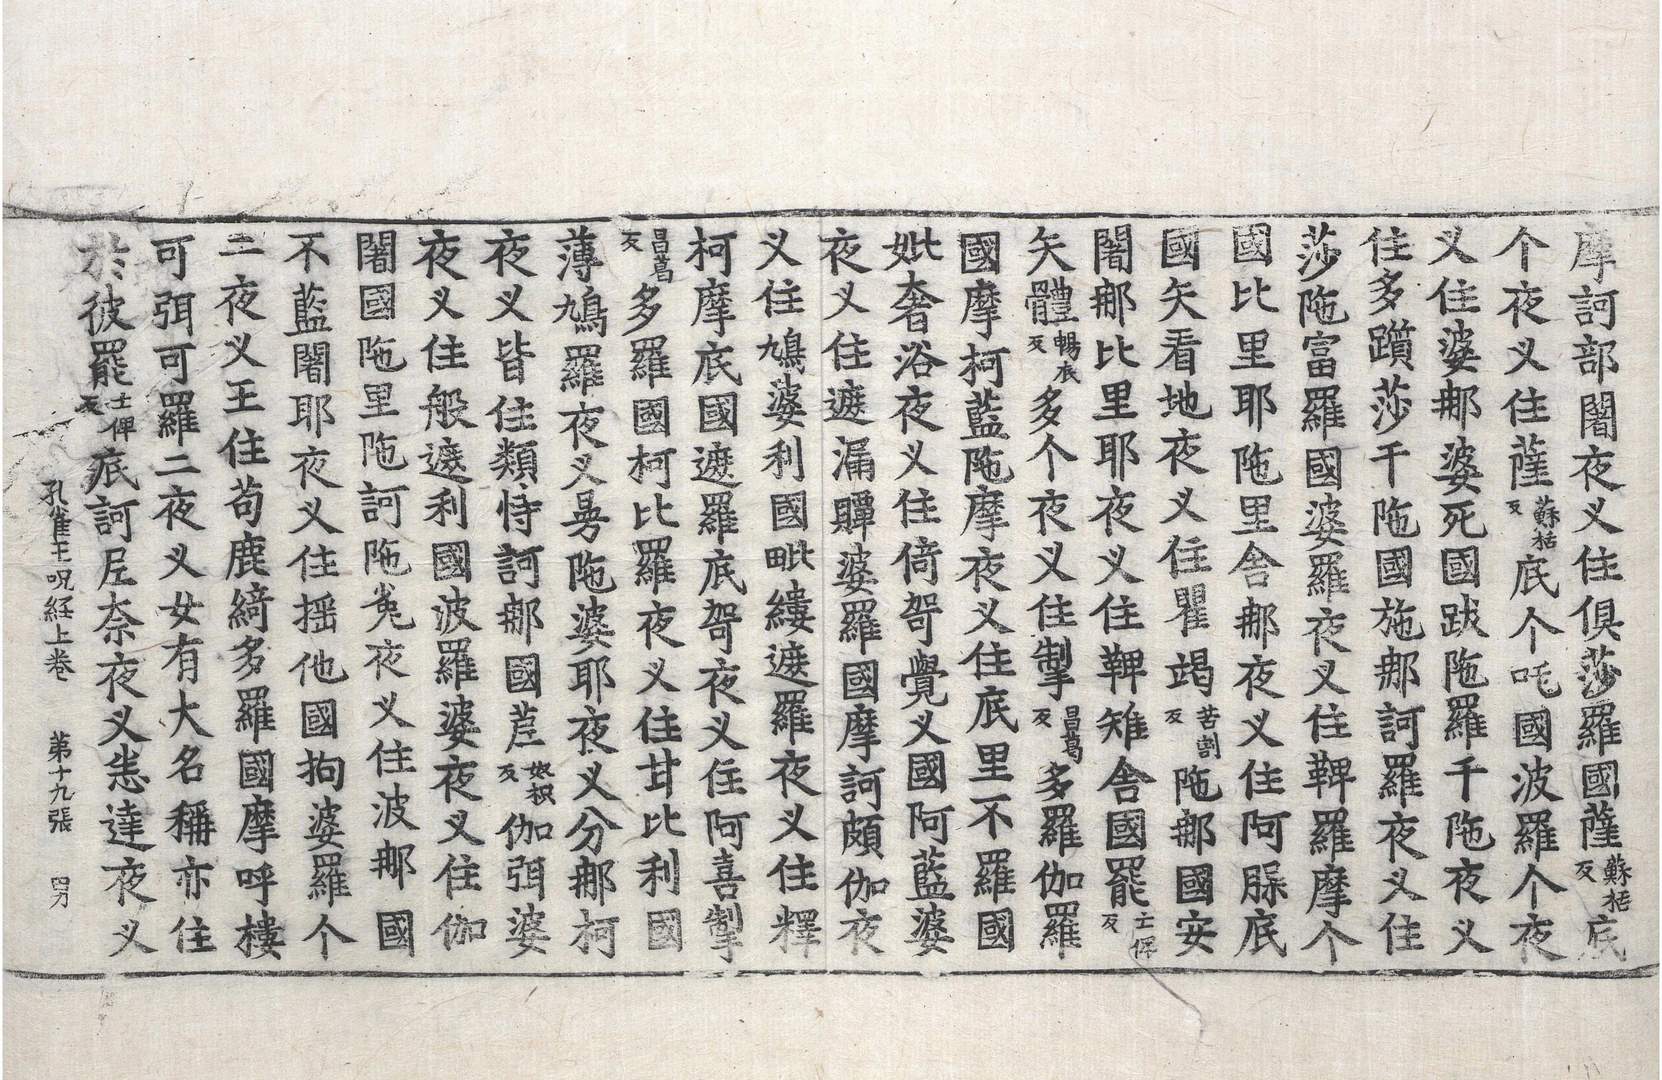 摩訶部闍夜义住俱莎羅國薩蘇栝反底
个夜义住薩蘇栝反底个吒國波羅个夜
义住婆㖠婆死國跋陁羅千陁夜义
住多躓莎千陁國施㖠訶羅夜义住
莎陁富羅國婆羅夜义住鞞羅摩个
國比里耶陁里舍㖠夜义住阿脲底
國矢看地夜义住瞿竭苦割反陁㖠國安
闍㖠比里耶夜义住鞞雉舍國罷士俾反
矢體暢衣反多个夜义住掣昌葛反多羅伽羅
國摩柯藍陁摩夜义住底里不羅國
妣奢浴夜义住倚哿覺义國阿藍婆
夜义住遮漏贉婆羅國摩訶頗伽夜
义住鳩婆利國毗縷遮羅夜义住釋
柯摩底國遮羅底哿夜义住阿喜掣
昌葛反多羅國柯比羅夜义住甘比利國
薄鳩羅夜义曼陁婆耶夜义分㖠柯
夜义皆住類恃訶㖠國茬奴枳反伽弭婆
夜义住般遮利國波羅婆夜义住伽
闍國陁里陁訶陁㝹夜义住波㖠國
不藍闍耶夜义住摇他國拘婆羅个
二夜义王住苟鹿綺多羅國摩呼樓
可弭可羅二夜义女有大名稱亦住
於彼罷士俾反底訶𡰱奈夜义恚達夜义
孔雀王呪経上卷 第十九張 四刀